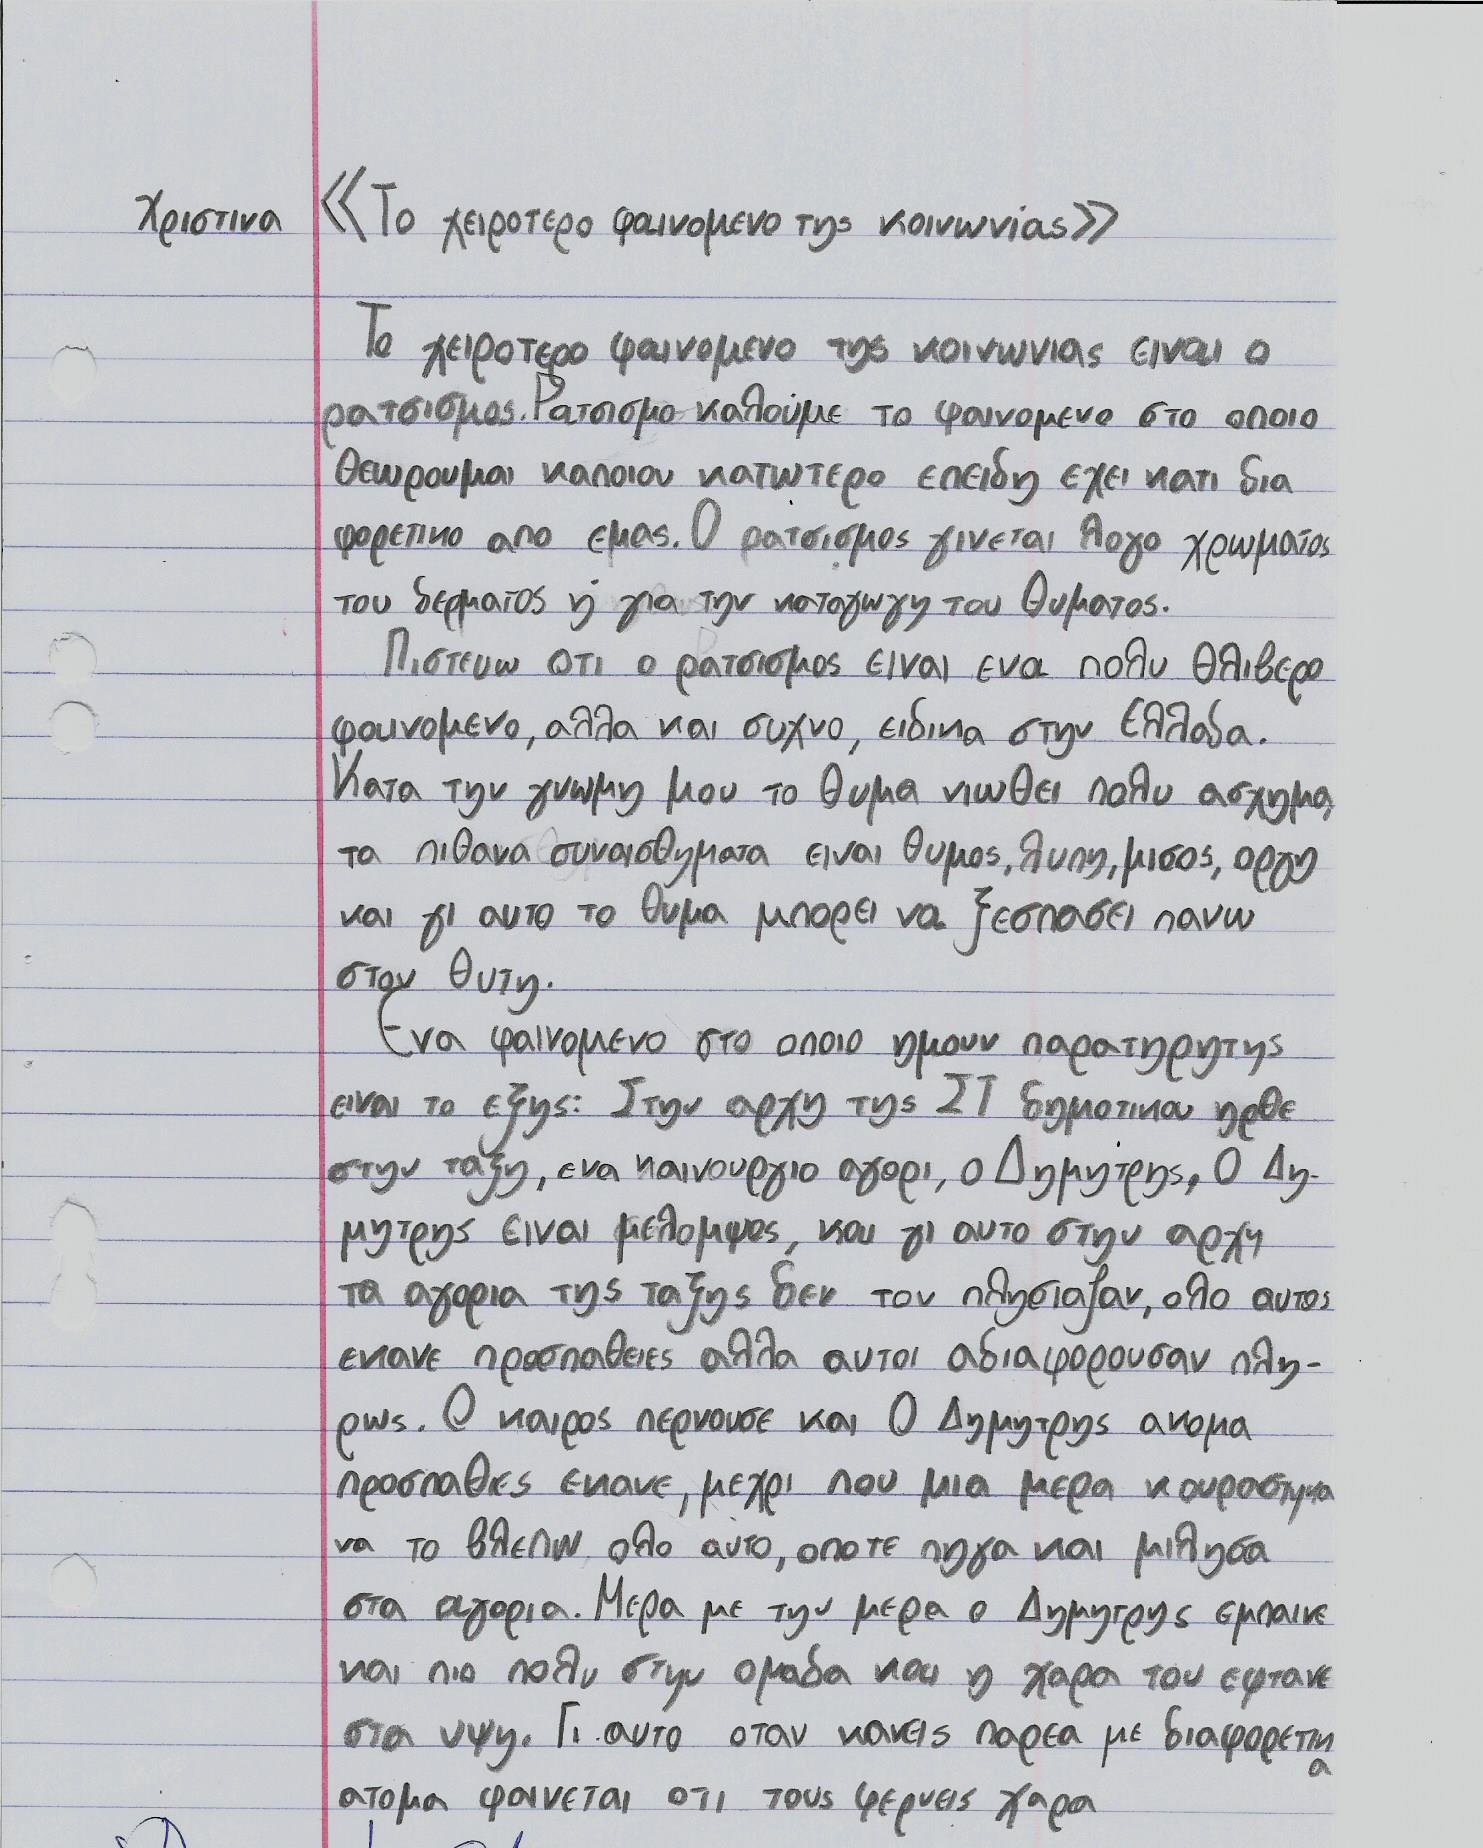 Χριστινα «Το χειροτερο φαινομενο της κοινωνίας»
Το χειροτερο φαινομενο της κοινωνιας ειναι ο
ρατσισμος. Ρατσισμο καλούμε το φαινομενο στο οποιο
θεωρουμαι καποιον κατωτερο επειδη εχει κατι δια
φορετικο απο εμας. Ο ρατσισμος γινεται λογο χρωματος
του δερματος ή για την καταγωγη του θυματος.
Πιστευω οτι ο ρατσισμος ειναι ενα πολυ θλιβερο
φαινομενο, αλλα και συχνο, ειδικα στην Ελλαδα.
Κατα την γνωμη μου το θυμα νιωθει πολυ ασχημα,
τα πιθανα συναισθηματα ειναι θυμος, λυπη, μισος, οργη
και γι αυτο το θυμα μπορει να ξεσπασει πανω
στον θυτη.
Ενα φαινομενο στο οποιο ημουν παρατηρητης
ειναι το εξης: Στην αρχη της ΣΤ δημοτικου ηρθε
στην ταξη, ενα καινουργιο αγορι, ο Δημητρης, Ο Δη-
μητρης ειναι μελομψος, και γι αυτο στην αρχη
τα αγορια της ταξης δεν τον πλησιαζαν, ολο αυτος
εκανε προσπαθειες αλλα αυτοι αδιαφορουσαν πλη-
ρως. Ο καιρος περνουσε και Ο Δημητρης ακομα
προσπαθιες εκανε, μεχρι που μια μερα κουραστηκα
να το βλεπω ολο αυτο, οποτε πηγα και μιλησα
στα αγορια. Μερα με την μερα ο Δημητρης εμπαινε
και πιο πολυ στην ομαδα και η χαρα του εφτανε
στα υψη. Γι αυτο οταν κανεις παρεα με διαφορετικα
ατομα φαινεται οτι τους φερνεις χαρα